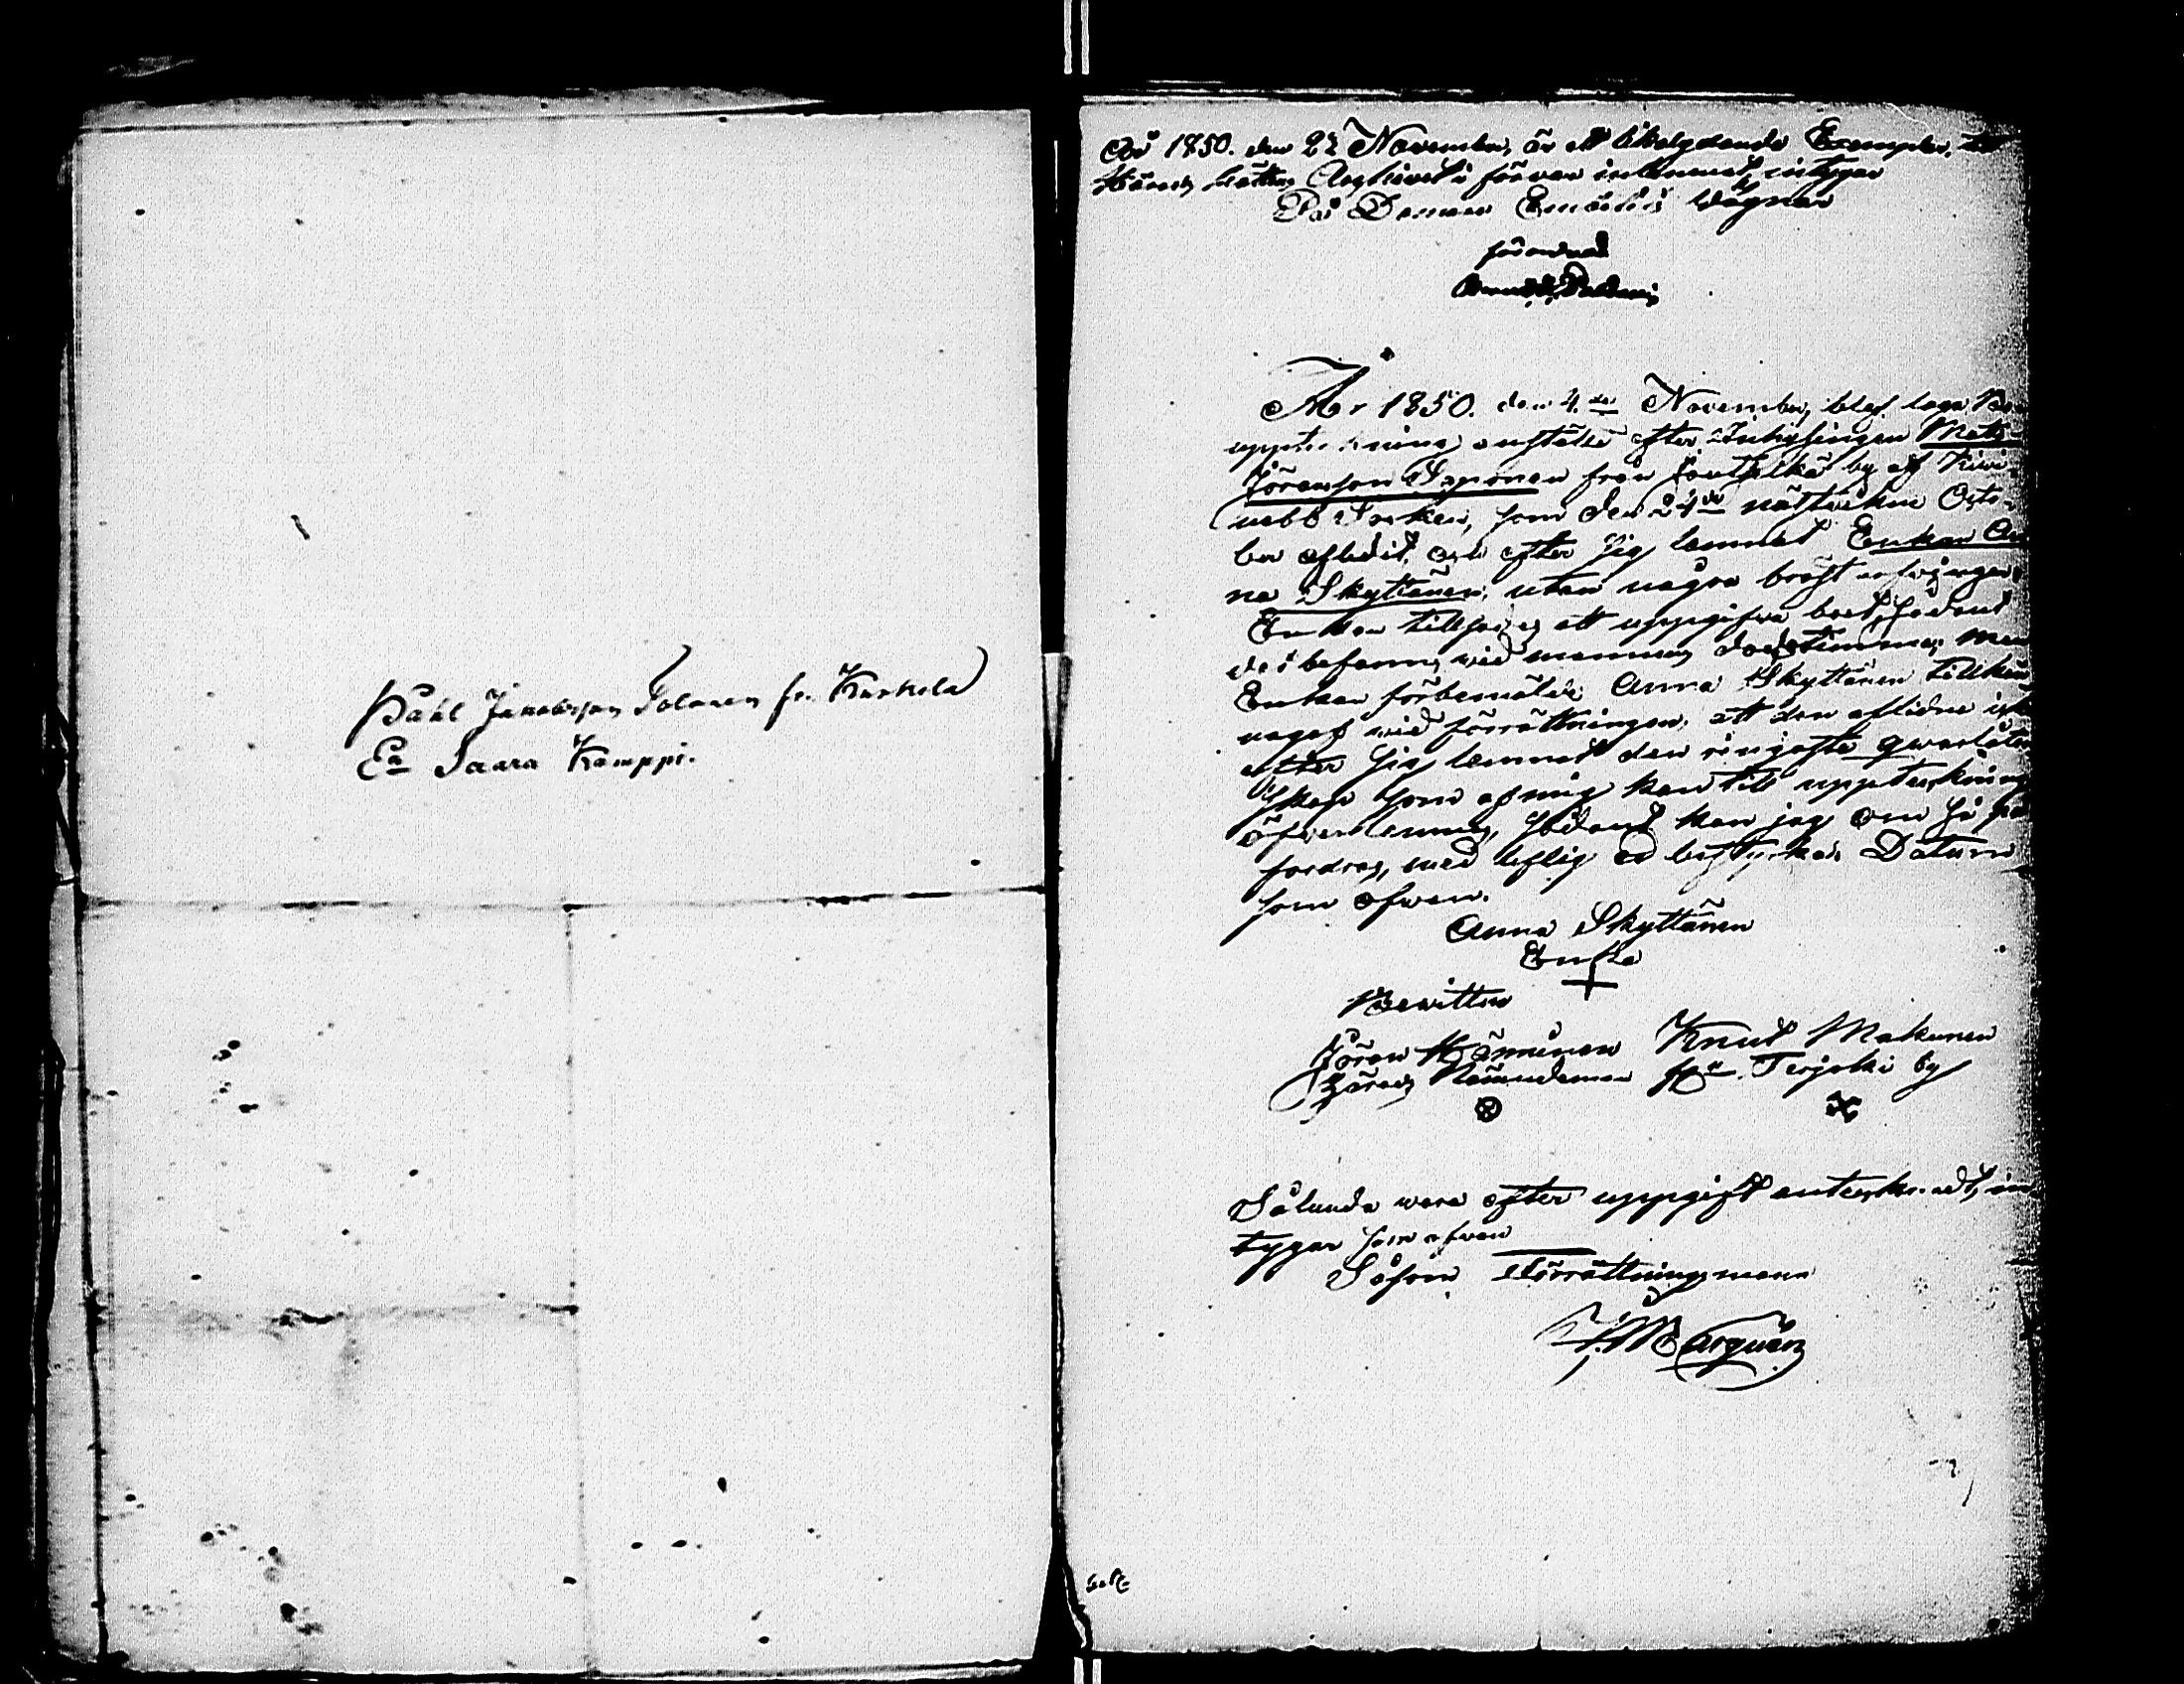 Påhl Jakobsson Tolanen fr. Karkela
Ea Saara Kamppi.
År 1850. den 22 November, är ett likalydande Exemplar, till
Härads Rättens Archivet i förvar inlemnat, intygar
På Domare Embetets Wägnar
förordnad
År 1850. den 4.de November, blef laga Bo
uppteckning anstäld efter Inhysingen Mats
Jöransson Iaponen från by af Kivi-
nebb Socken, som den 24de nästvikne Octo-
ber afledit, och efter sig lemnat Enkan An
na Skyttänen, utan några bröst arfvingar,
Enkan tillsades att uppgifva boet, sådant
det befanns vid mannens dödstimma; men
Enkan förbemälde Anna Skyttänen tillkän-
nagaf vid förrättningen, att den aflidne ick
efter sig lemnat den ringaste qvarlåten
skap som af mig kan till uppteckning
öfverlemnas, sådant kan jag om så på
fordras, med liflig ed bestyrka, Datum
som ofvan.
Anna Skyttänen
Enka
Bevittna
Jöran Hänninen Knut Makunen
Härads Nämndeman fr. Terjoki by
Sålunda vara efter uppgift antecknadt, in
tygar som ofvan
Såsom Förrättningsman